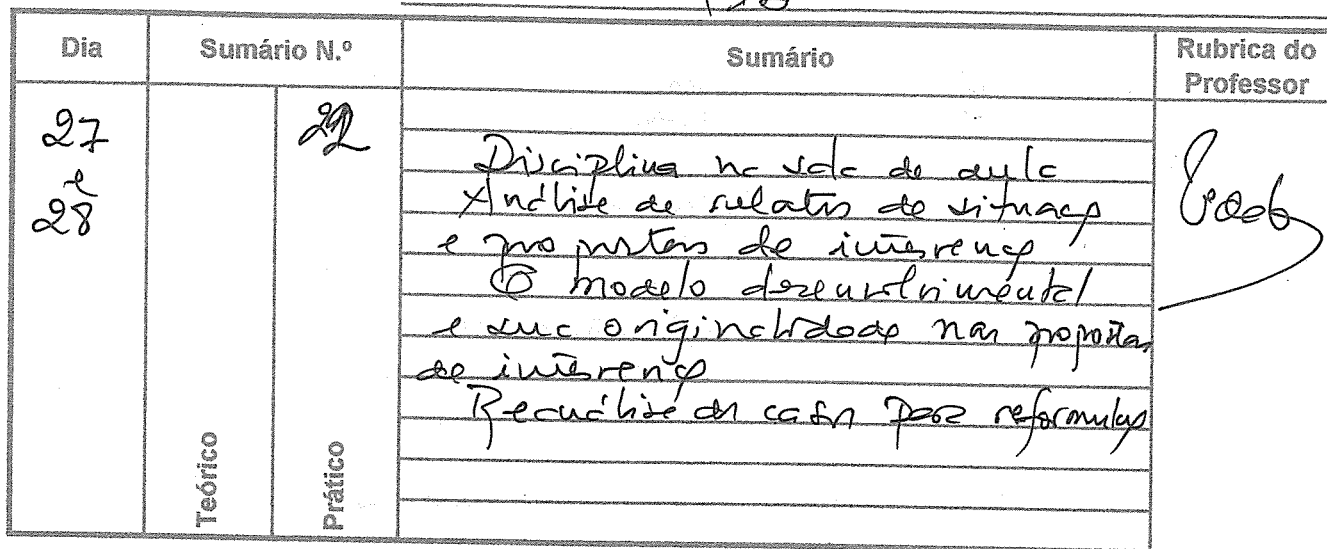 Dia Sumário N.º Sumário Rubrica do Professor
27 e 28
22
Disciplina na sala de aula
Análise de relatos de situação
e propostas de intervenção
O modelo desenvolvimental
e sua originalidade nas propostas
de intervenção
Reanálise dos casos para reformulação
Teórico
Prático